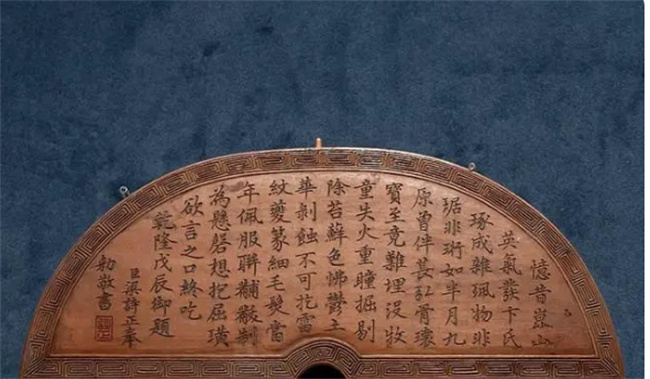 憶昔崑山
英氣發卞氏
琢成雜珮物非
琚非珩如半月九
原曾伴萇弘骨壞
寶至竟難埋沒牧
童失火重瞳掘剔
除苔蘚色怫鬱土
華剝蝕不可扢雷
紋夔篆細毛髮當
年佩服聯黼黻製
為懸磬想屈璜
欲言之口終吃
乾隆戊辰御題
臣梁詩正奉
勅敬書